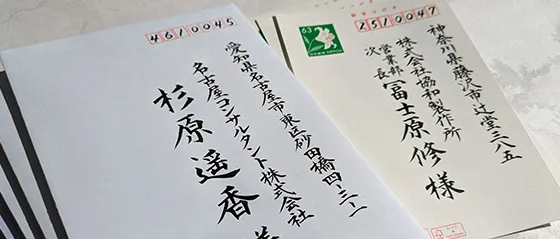 4610045
愛知県名古屋市東区砂田橋四-三-一
名古屋コンサルタント株式会社
杉原遥香様
63
2510047
神奈川県藤沢市辻堂三八五
株式会社協和製作所
営業部
次長
冨士原修様